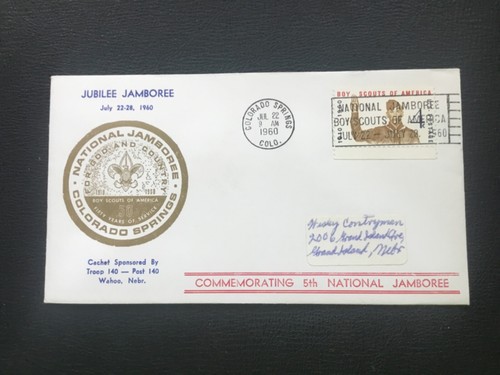 JUBILEE JAMBOREE
July 22-28, 1960
NATIONAL JAMBOREE
FOR GOD AND COUNTRY
1910 1960
BOY SCOUTS OF AMERICA
50
SIXTY YEARS OF SERVICE
COLORADO SPRINGS
Cachet Sponsored By
Troop 140 — Post 140
Wahoo, Nebr.
COLORADO SPRINGS
JUL 22
9 AM
1960
COLO.
BOY SCOUTS OF AMERICA
1910 1960
4¢
NATIONAL JAMBOREE
BOY SCOUTS OF AMERICA
JULY 22 - JULY 28, 1960
Wesley Contryman
2006 Grand Island Ave,
Grand Island, Nebr
COMMEMORATING 5th NATIONAL JAMBOREE